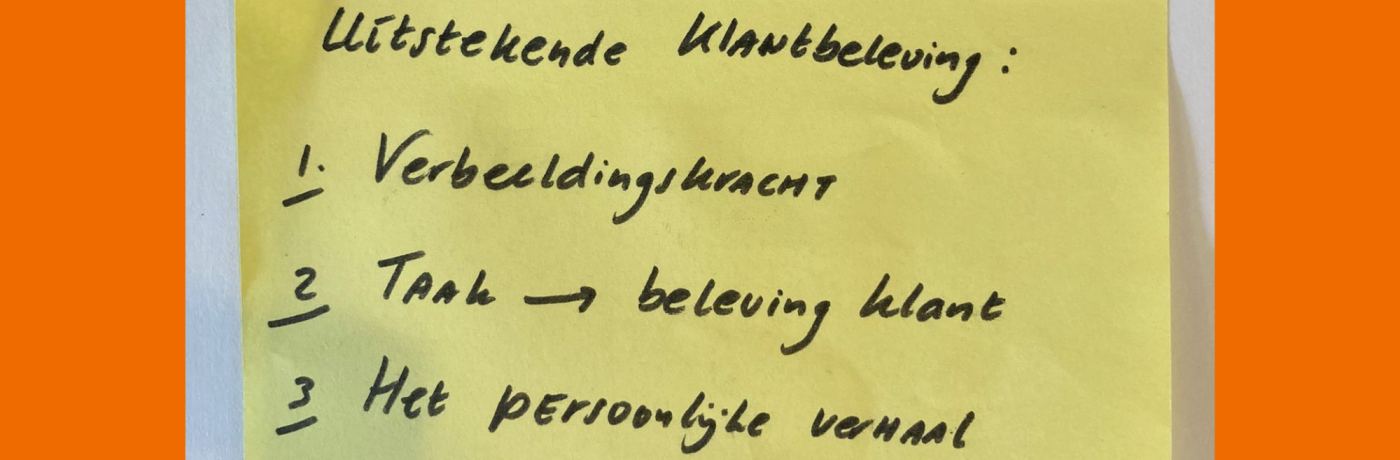 Uitstekende Klantbeleving:
1. Verbeeldingskracht
2 Taak → beleving klant
3 Het persoonlijke verhaal